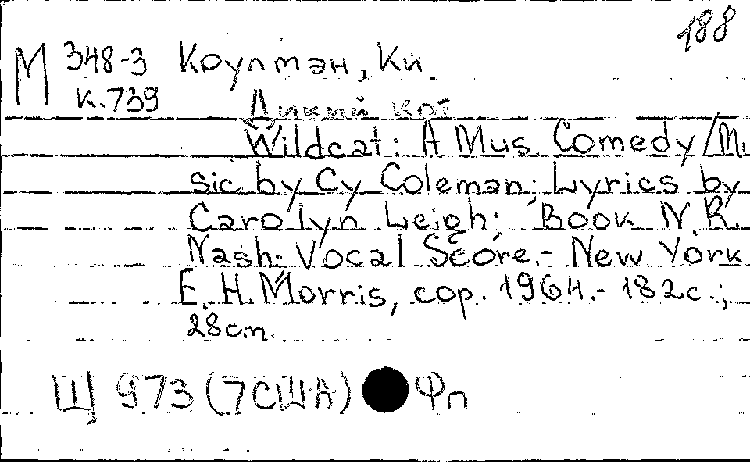 188
М 348-3 Коулмэн, Ки.
к.739
Дикий кот
Wildcat: A Mus Comedy / Mu
sic by Cy Coleman; Lyrics by
Carolyn Leigh; Book N.R.
Nash. Vocal Score.- New York
E. H. Morris, cop. 1964.- 182с.;
28см.
Щ 973 (7США) Фп